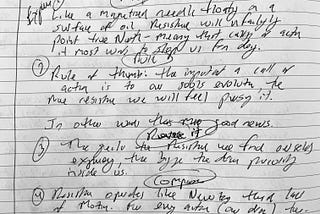 Like a magnetized needle floating on a
surface of oil Resistance will infallibly
point true North - meaning that calling or action
it most wants to stop us from doing.
Rule of thumb: the more important a call or
action is to our soul's evolution, the
more resistance we will feel pursuing it.
In other words this is good news.
Reverse it
③ The greater the Resistance we find ourselves
experiencing, the the
inside us.
Compass
④ Resistance operates like Newton third law
of Motion. For every action (our dream) the